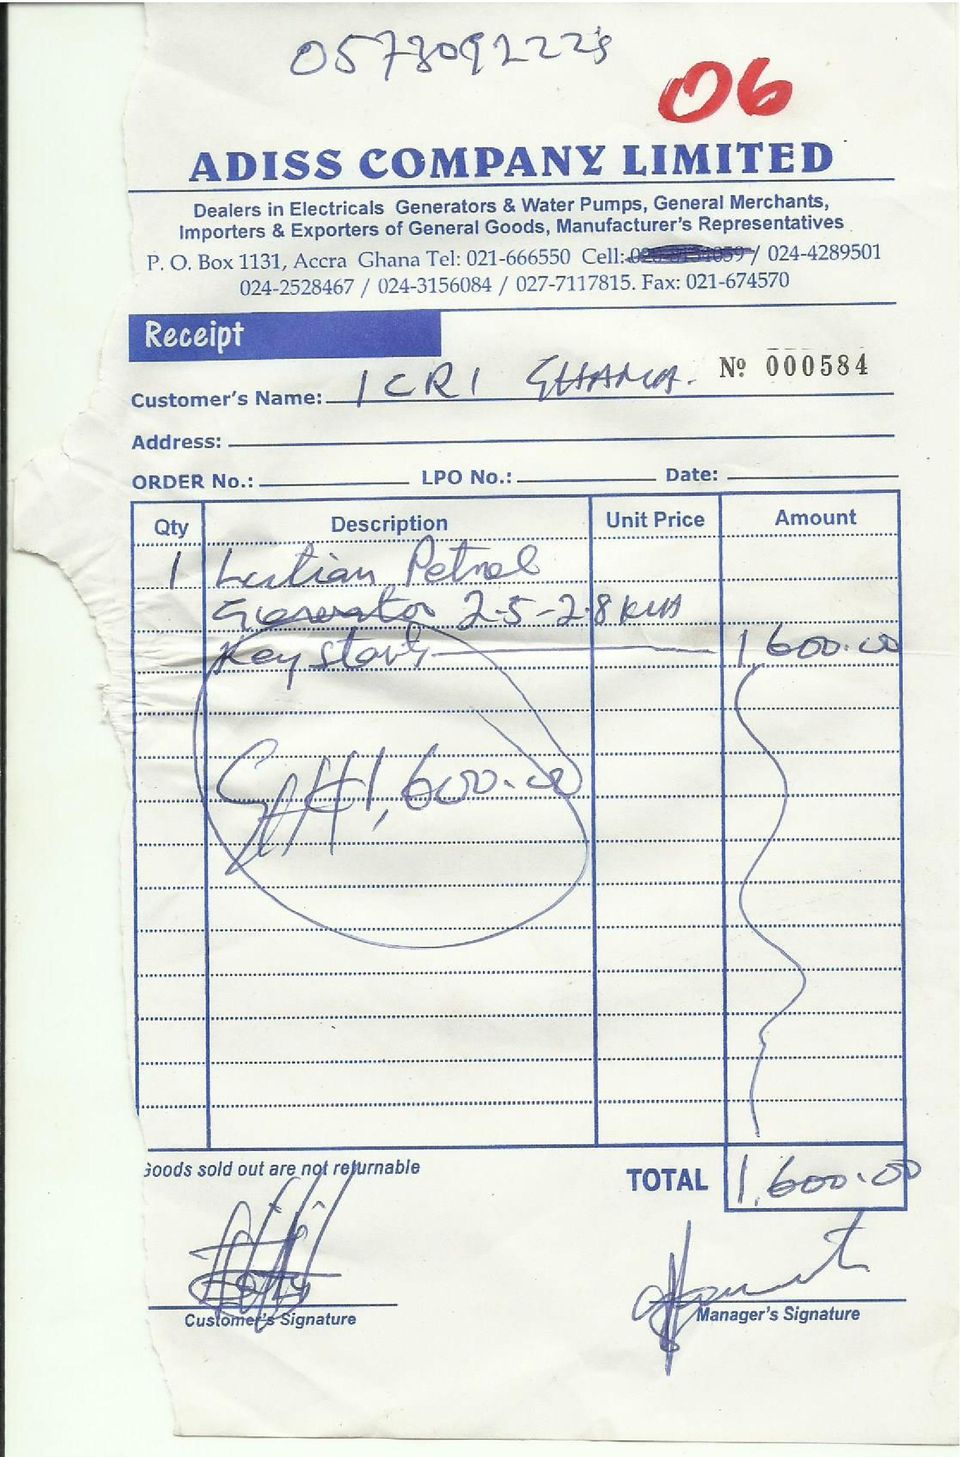 06
ADISS COMPANY LIMITED
Dealers in Electricals Generators & Water Pumps, General Merchants,
Importers & Exporters of General Goods, Manufacturer's Representatives
P. O. Box 1131, Accra Ghana Tel: 021-666550 Cell: / 024-4289501
024-2528467 / 024-3156084 / 027-7117815. Fax: 021-674570
Receipt
Nº 000584
Customer's Name: ICRI GHANA.
Address:
ORDER No.: LPO No.: Date:
Qty Description Unit Price Amount
1 Petrol
Generator 2.5-2.8 KVA
Key start 1,600.00
GH¢1,600.00
Goods sold out are not returnable
TOTAL 1,600.00
Customer's Signature Manager's Signature